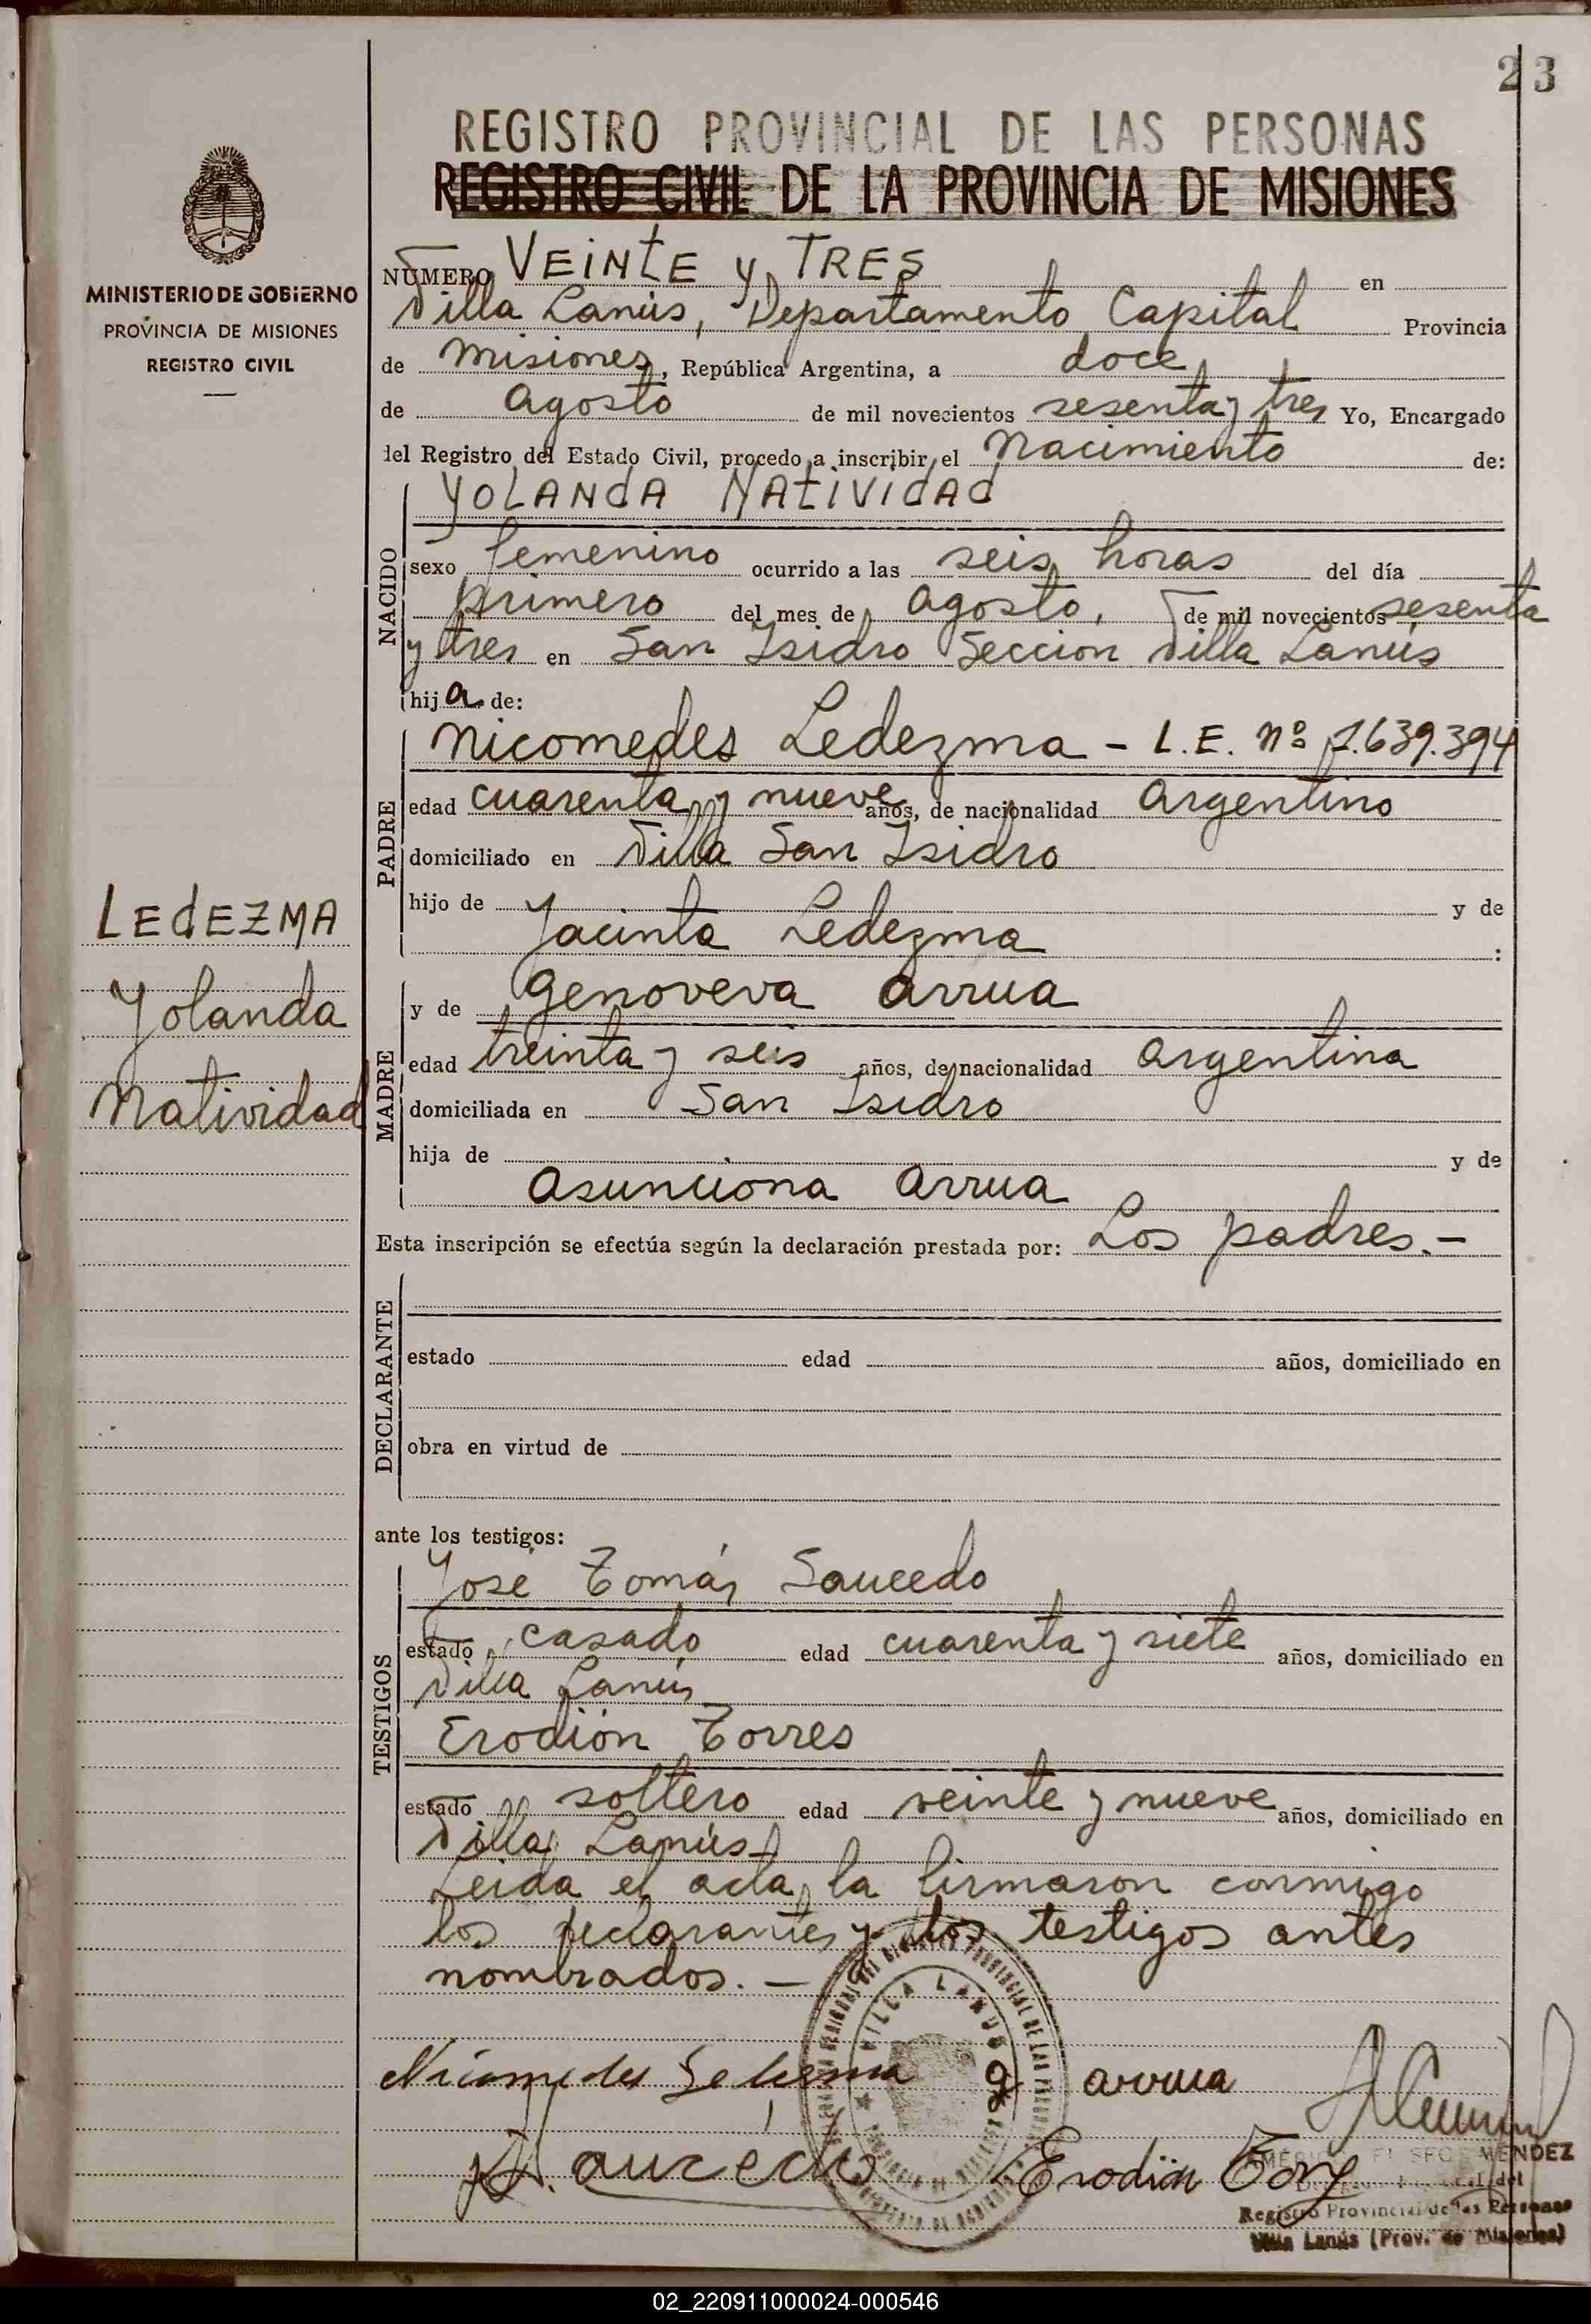 23
REGISTRO PROVINCIAL DE LAS PERSONAS
REGISTRO CIVIL DE LA PROVINCIA DE MISIONES
MINISTERIO DE GOBIERNO
PROVINCIA DE MISIONES
REGISTRO CIVIL
NÚMERO VEINTE y TRES en
Villa Lanús, Departamento Capital Provincia
de Misiones, República Argentina, a doce
de Agosto de mil novecientos sesenta y tres Yo, Encargado
del Registro del Estado Civil, procedo a inscribir el Nacimiento de:
NACIDO
YOLANDA NATIVIDAD
sexo femenino ocurrido a las seis horas del día
primero del mes de Agosto, de mil novecientos sesenta
y tres en San Isidro Seccion Villa Lanús
hija de:
PADRE
Nicomedes Ledezma - L.E. Nº 7.639.394
edad cuarenta y nueve años, de nacionalidad Argentino
domiciliado en Villa San Isidro
hijo de y de
Jacinta Ledezma :
LEDEZMA
Yolanda
Natividad
MADRE
y de Genoveva Arrua
edad treinta y seis años, de nacionalidad Argentina
domiciliada en San Isidro
hija de y de
Asunciona Arrua
Esta inscripción se efectúa según la declaración prestada por: Los padres.-
DECLARANTE
estado edad años, domiciliado en
obra en virtud de
ante los testigos:
TESTIGOS
José Tomás Saucedo
estado casado edad cuarenta y siete años, domiciliado en
Villa Lanús
Erodión Torres
estado soltero edad veinte y nueve años, domiciliado en
Villa Lanús
Leida el acta, la firmaron conmigo
los declarantes y los testigos antes
nombrados.-
VILLA LANUS
Nicomedes Ledezma g arrua
Saucedo Erodión Torres
MENDEZ
Registro Provincial de las Personas
Villa Lanús (Prov. de Misiones)
02_220911000024-000546